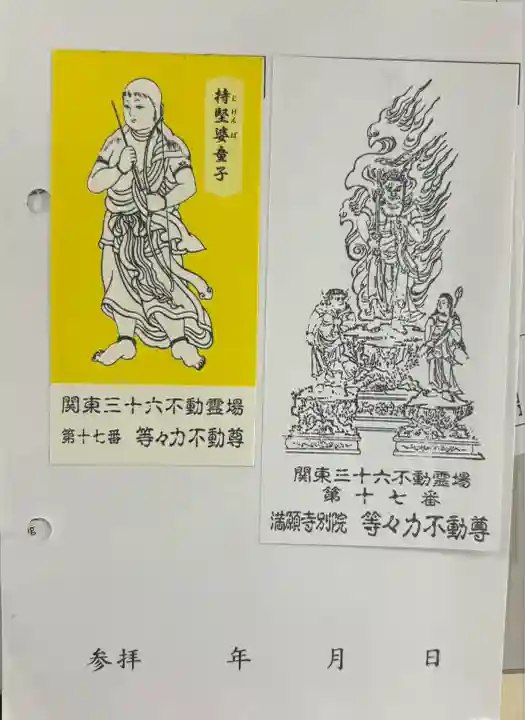 持堅婆童子
じけんば
関東三十六不動霊場
第十七番 等々力不動尊
関東三十六不動霊場
第十七番
満願寺別院 等々力不動尊
参拝 年 月 日